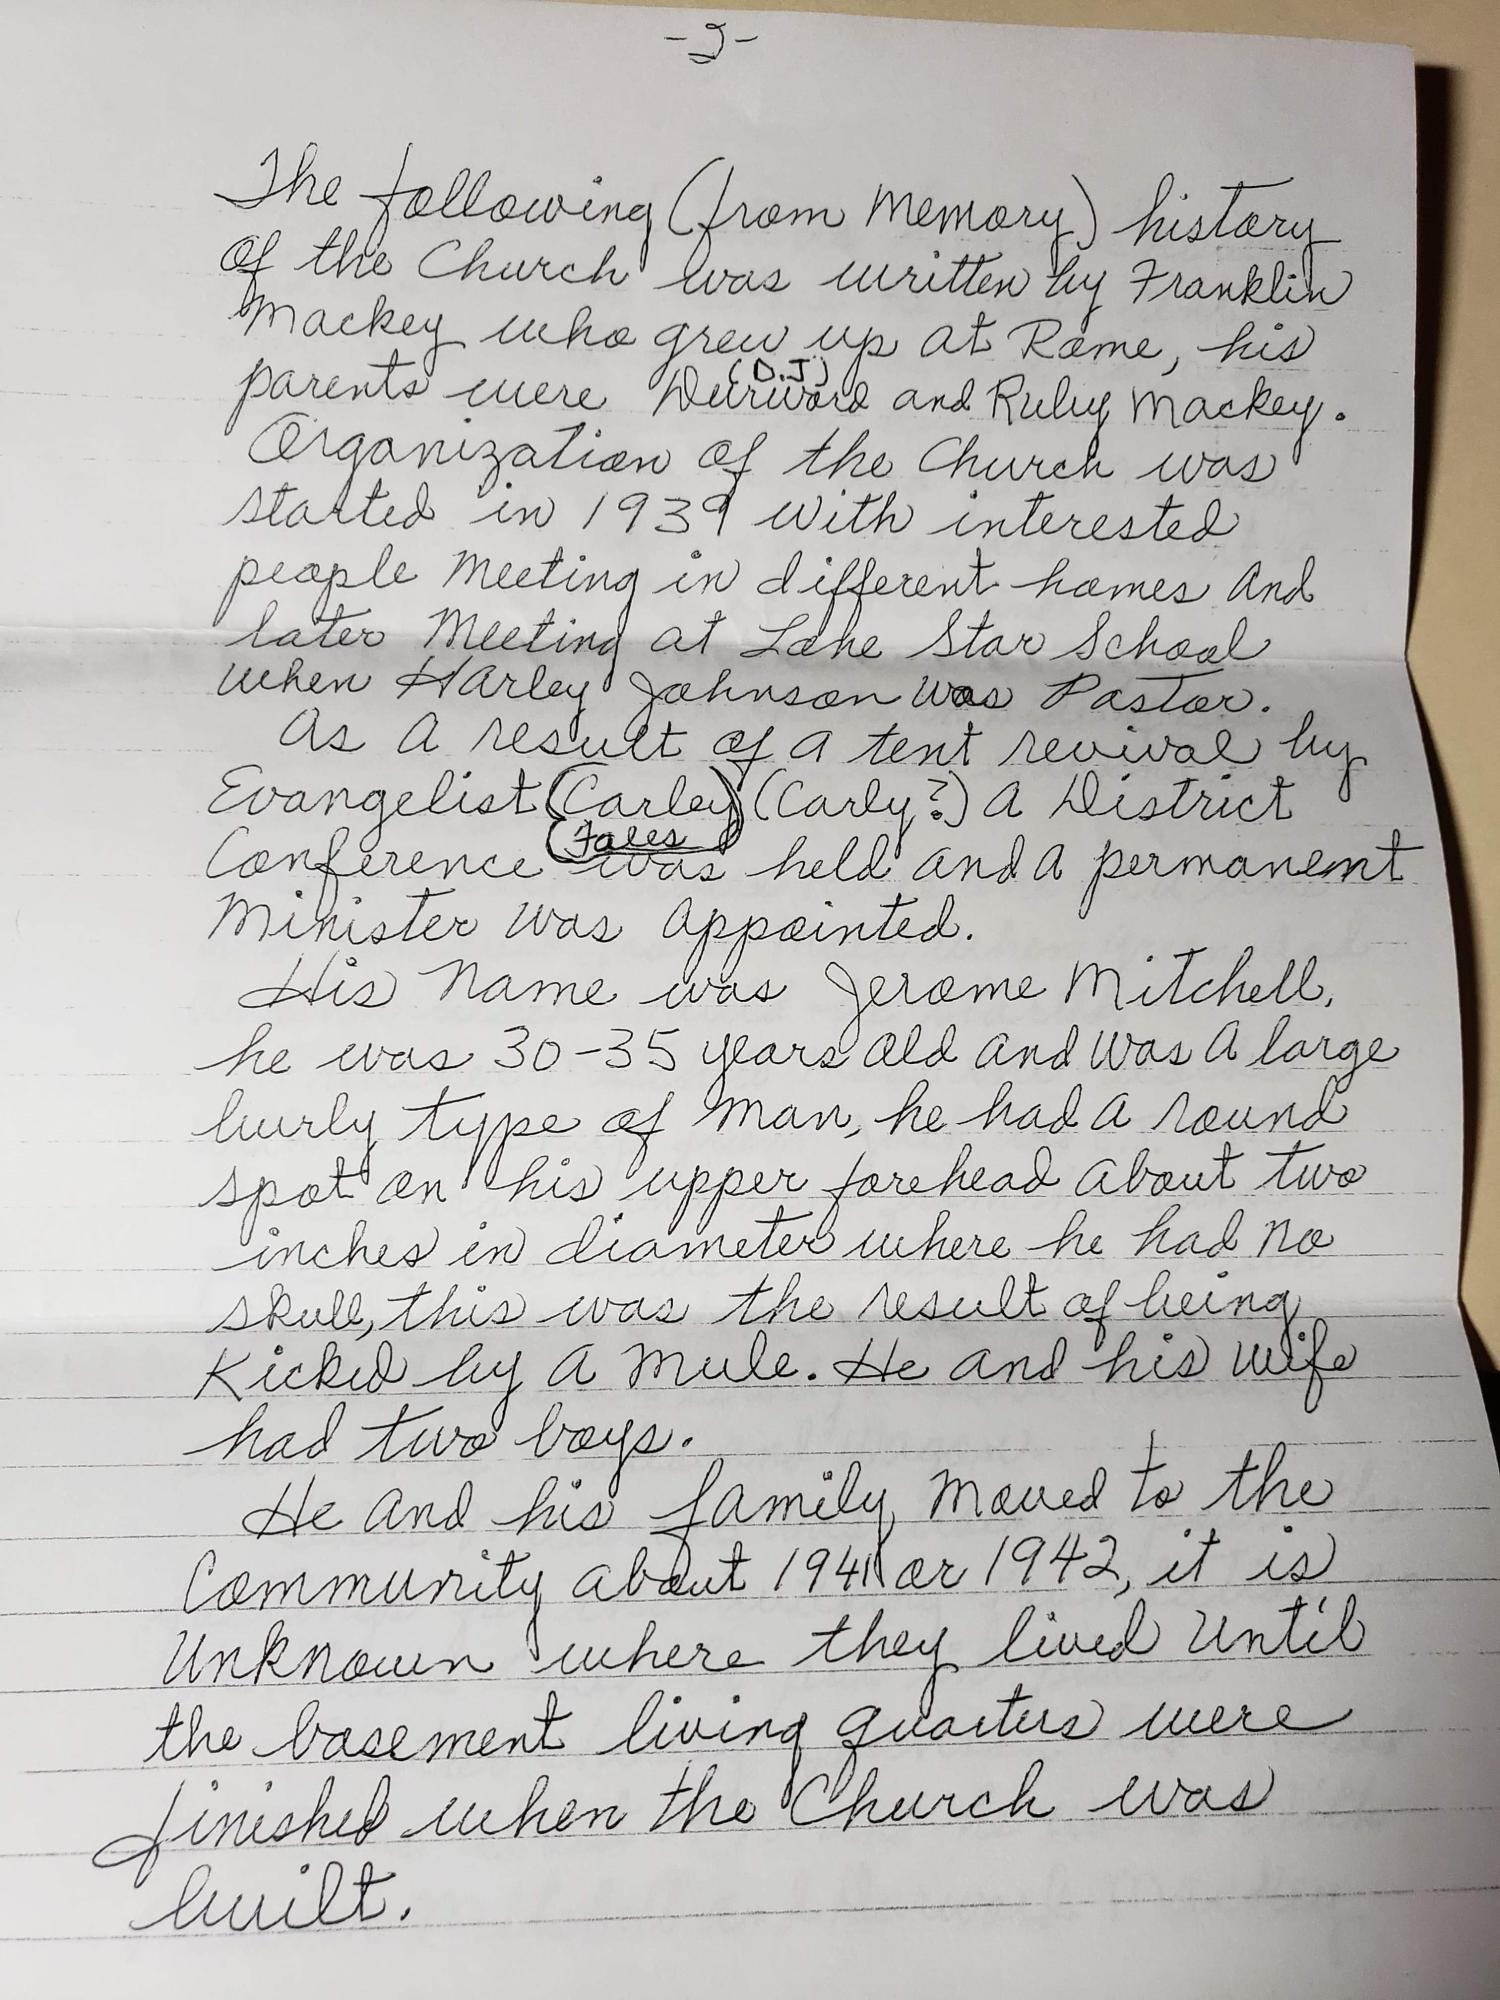 The following (from Memory) history
of the Church was written by Franklin
Mackey who grew up at Rome, his
(D.J)
parents were Durward and Ruby Mackey.
Organization of the Church was
started in 1939 with interested
people Meeting in different homes And
later Meeting at Lone Star School
when Harley Johnson was Pastor.
As A result of A tent revival by
Evangelist (Carley) (Carly?) A District
Conference was held And A permanent
Minister was Appointed.
His Name was Jerome Mitchell,
he was 30-35 years old And was A large
burly type of Man, he had A round
spot on his upper forehead About two
inches in diameter where he had No
skull, this was the result of being
Kicked by A Mule. He And his wife
had two boys.
He And his family Moved to the
Community About 1941 or 1942, it is
Unknown where they lived Until
the basement living quarters were
finished when the Church was
built.